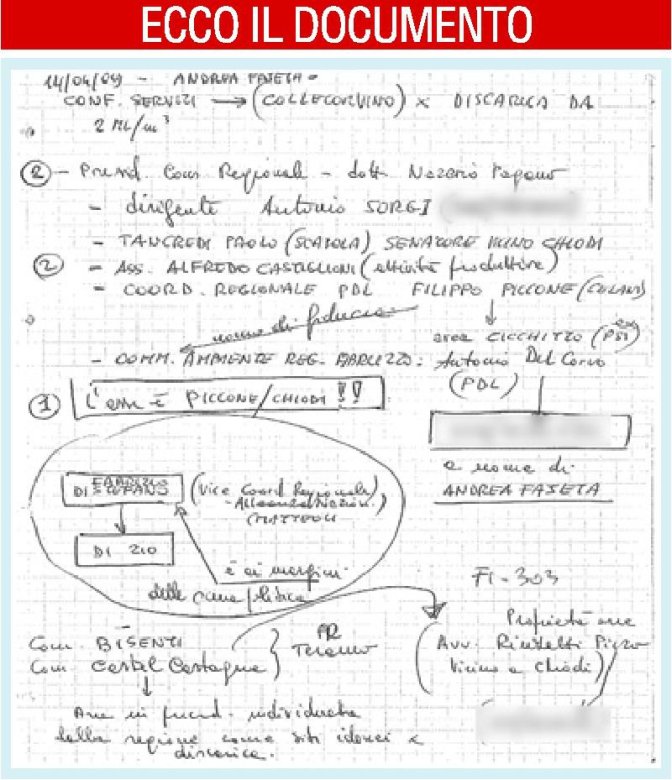 ECCO IL DOCUMENTO
14/04/09 - ANDREA FASETA -
CONF. SERVIZI → (COLLECORVINO) x DISCARICA DA
2 ML/m³
② - Presid. Cons Regionale - dott. Nazario Pagano
- dirigente Antonio SORGI
- TANCREDI PAOLO (SCAJOLA) SENATORE CHIODI
② - ASS. ALFREDO CASTIGLIONI (attività produttive)
- COORD. REGIONALE PDL FILIPPO PICCONE (CELANO)
uomo di fiducia
area CICCHITTO (PSI)
- COMM. AMBIENTE REG. ABRUZZO: Antonio Del Corvo
(PDL)
① L'asse è PICCONE/CHIODI !!
e nome di
ANDREA FASETA
FABRIZIO
DI STEFANO (Vice Coord Regionale)
- Alleanza Nazion.)
(MATTEOLI
DI ZIO
è ai margini
della politica
FI-303
Com. BISENTI
Com Castel Castagna } PR Teramo
Proprietà
Avv.
vicino a Chiodi)
Aree in individuate
dalla regione come siti idonei x
discarica.